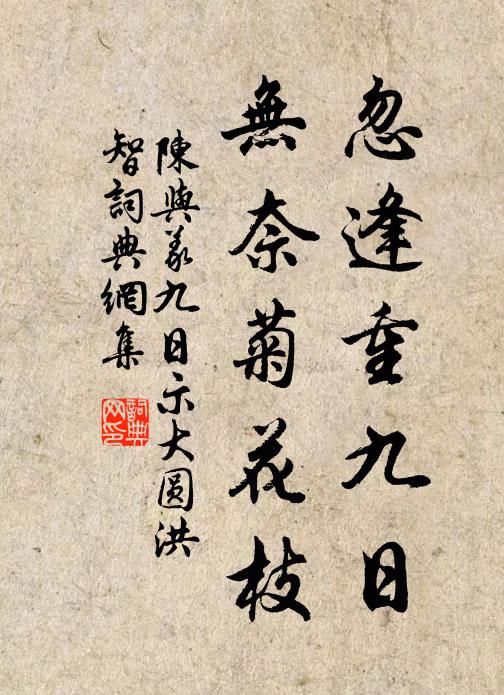 忽逢重九日
無奈菊花枝
陳與義九日示大圓洪
智詞典網集
詞典網印